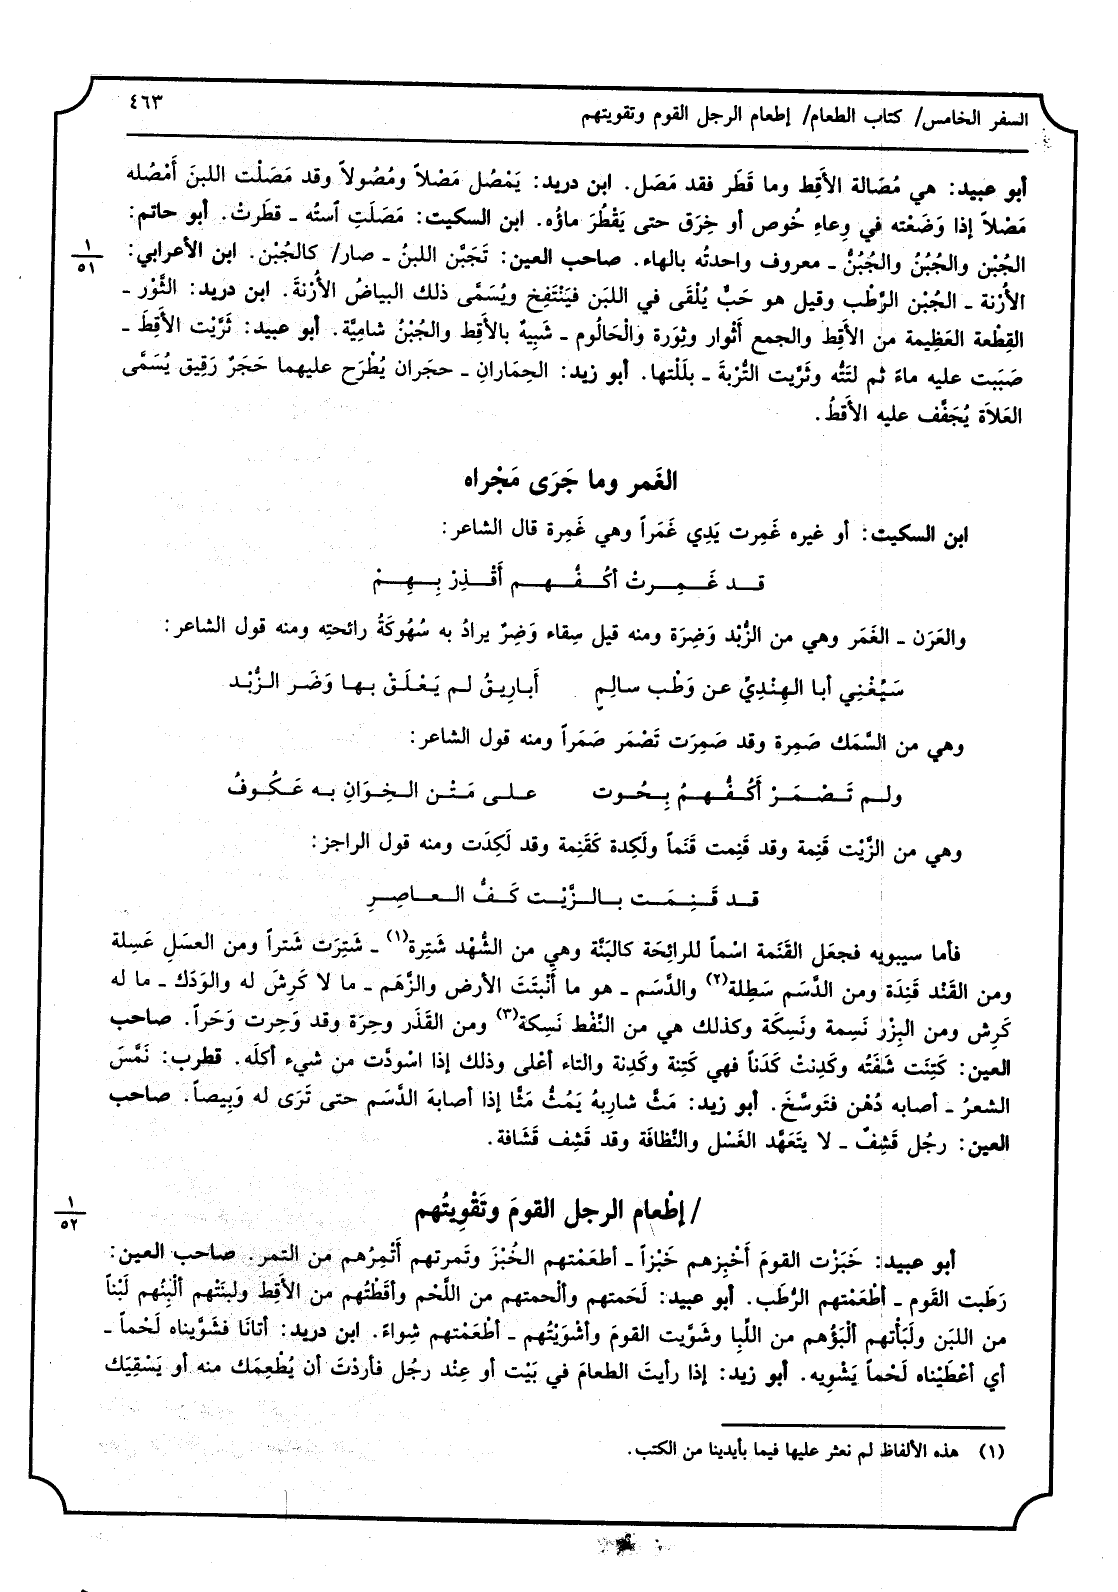 السفر الخامس/ كتاب الطعام/ إطعام الرجل القوم وتقويتهم ٤٦٣
أبو عبيد: هي مُصَالة الأَقِط وما قَطَر فقد مَصَل. ابن دريد: يَمْصُل مَصْلاً ومُصُولاً وقد مَصَلْت اللبنَ أَمْصُله
مَصْلاً إذا وَضَعْته في وِعاءِ خُوص أو خِرَق حتى يَقْطُرَ ماؤُه. ابن السكيت: مَصَلَتِ ٱستُه ـ قطَرتْ. أبو حاتم:
الجُبْن والجُبُنُ والجُبُنُّ ـ معروف واحدتُه بالهاء. صاحب العين: تَجَبَّن اللبنُ ـ صار/ كالجُبْن. ابن الأعرابي:
١
٥١
الأُرْنة ـ الجُبْن الرَّطْب وقيل هو حَبٌّ يُلْقَى في اللبَن فيَنْتَفِخ ويُسَمَّى ذلك البياضُ الأُرْنةَ. ابن دريد: الثَّوْر ـ
القِطْعة العَظِيمة من الأَقِط والجمع أَثْوار وثِوَرة والْحَالُوم ـ شَبِيهٌ بالأَقِط والجُبْنُ شامِيَّة. أبو عبيد: ثَرَّيْت الأَقِطَ ـ
صَبَبت عليه ماءً ثم لتَتُّه وثَرَّيت التُّرْبةَ ـ بلَلْتها. أبو زيد: الحِمَارانِ ـ حجَران يُطْرَح عليهما حَجَرٌ رَقِيق يُسَمَّى
العَلاَة يُجَفَّف عليه الأَقطُ.
الغَمر وما جَرَى مَجْراه
ابن السكيت: أو غيره غَمِرت يَدِي غَمَراً وهي غَمِرة قال الشاعر:
قـد غَـمِـرتْ أكُـفُّـهـم أَقْـذِرْ بِـهِـمْ
والعَرَن ـ الغَمَر وهي من الزُّبْد وَضِرَة ومنه قيل سِقاء وَضِرٌ يرادُ به سُهُوكَةُ رائحتِه ومنه قول الشاعر:
سَيُغْنِي أبا الهِنْدِيِّ عن وَطْب سالِمٍ أَبارِيقُ لم يَعْلَقْ بها وَضَر الزُّبْد
وهي من السَّمَك صَمِرة وقد صَمِرَت تَصْمَر صَمَراً ومنه قول الشاعر:
ولـم تَـصْـمَـرْ أَكُـفُّـهـمُ بِـحُوت عـلـى مَـتْـن الـخِـوَانِ بـه عَـكُـوفُ
وهي من الزَّيْت قَنِمة وقد قَنِمت قَنَماً ولَكِدة كَقَنِمة وقد لَكِدَت ومنه قول الراجز:
قـد قَـنِـمَـت بـالـزَّيْـت كَـفُّ الـعـاصِـرِ
فأما سيبويه فجعَل القَنَمة اسْماً للرائحَة كالبَنَّة وهي من الشُّهْد شَتِرة(١) ـ شَتِرَت شَتراً ومن العسَلِ عَسِلة
ومن القَنْد قَنِدَة ومن الدَّسَم سَطِلة(٢) والدَّسَم ـ هو ما أَنْبتَتَ الأرض والزَّهَم ـ ما لا كَرِشَ له والوَدَك ـ ما له
كَرِش ومن البِزْر نَسِمة ونَسِكَة وكذلك هي من النَّفْط نَسِكة(٣) ومن القَذَر وحِرَة وقد وَحِرت وَحَراً. صاحب
العين: كَتِنَت شَفَتُه وكَدِنتْ كَدَناً فهي كَتِنة وكَدِنة والتاء أعْلى وذلك إذا اسْودَّت من شيء أكلَه. قطرب: نَمَّسَ
الشعرُ ـ أصابه دُهْن فتَوسَّخَ. أبو زيد: مَثَّ شارِبهُ يَمُثُّ مَثًّا إذا أصابهَ الدَّسَم حتى تَرَى له وَبِيصاً. صاحب
العين: رجُل قَشِفٌ ـ لا يتَعَهَّد الغَسْل والنَّظافَة وقد قَشِف قَشَافة.
/ إطْعام الرجل القومَ وتَقْوِيتُهم
١
٥٢
أبو عبيد: خَبَزْت القومَ أَخْبِزهم خَبْزاً ـ أطعَمْتهم الخُبْزَ وتَمرتهم أَتْمِرُهم من التمر. صاحب العين:
رَطَبت القَوم ـ أطْعَمْتهم الرُّطَب. أبو عبيد: لَحَمتهم وألْحمتهم من اللَّحْم وأقَطْتُهم من الأَقِط ولبنَتْهم ألْبِنُهم لَبْناً
من اللبَن ولَبَأْتهم ألْبَؤُهم من اللِّبا وشَوَّيت القومَ وأَشْوَيْتُهم ـ أطْعَمْتهم شِواءً. ابن دريد: أتانَا فشَوَّيناه لَحْماً ـ
أي أعْطَيْناه لَحْماً يَشْوِيه. أبو زيد: إذا رأيتَ الطعامَ في بَيْت أو عِنْد رجُل فأردْتَ أن يُطْعِمَك منه أو يَسْقِيَك
(١) هذه الألفاظ لم نعثر عليها فيما بأيدينا من الكتب.